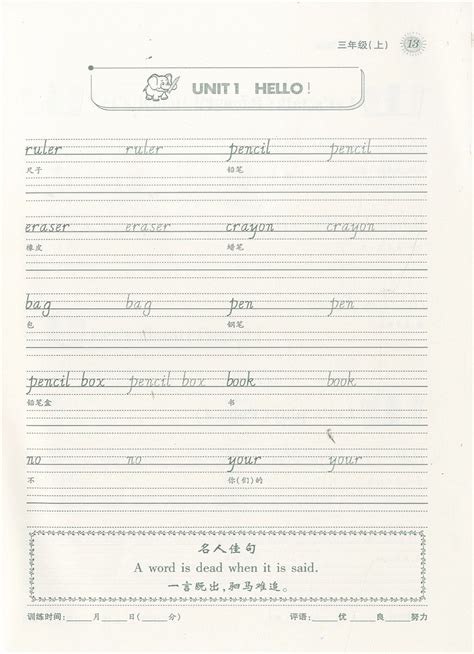 三年级(上) 13
UNIT 1 HELLO!
ruler ruler pencil pencil
尺子 铅笔
eraser eraser crayon crayon
橡皮 蜡笔
bag bag pen pen
包 钢笔
pencil box pencil box book book
铅笔盒 书
no no your your
不 你(们)的
名人佳句
A word is dead when it is said.
一言既出,驷马难追。
训练时间:____月____日(____分) 评语:____优____良____努力